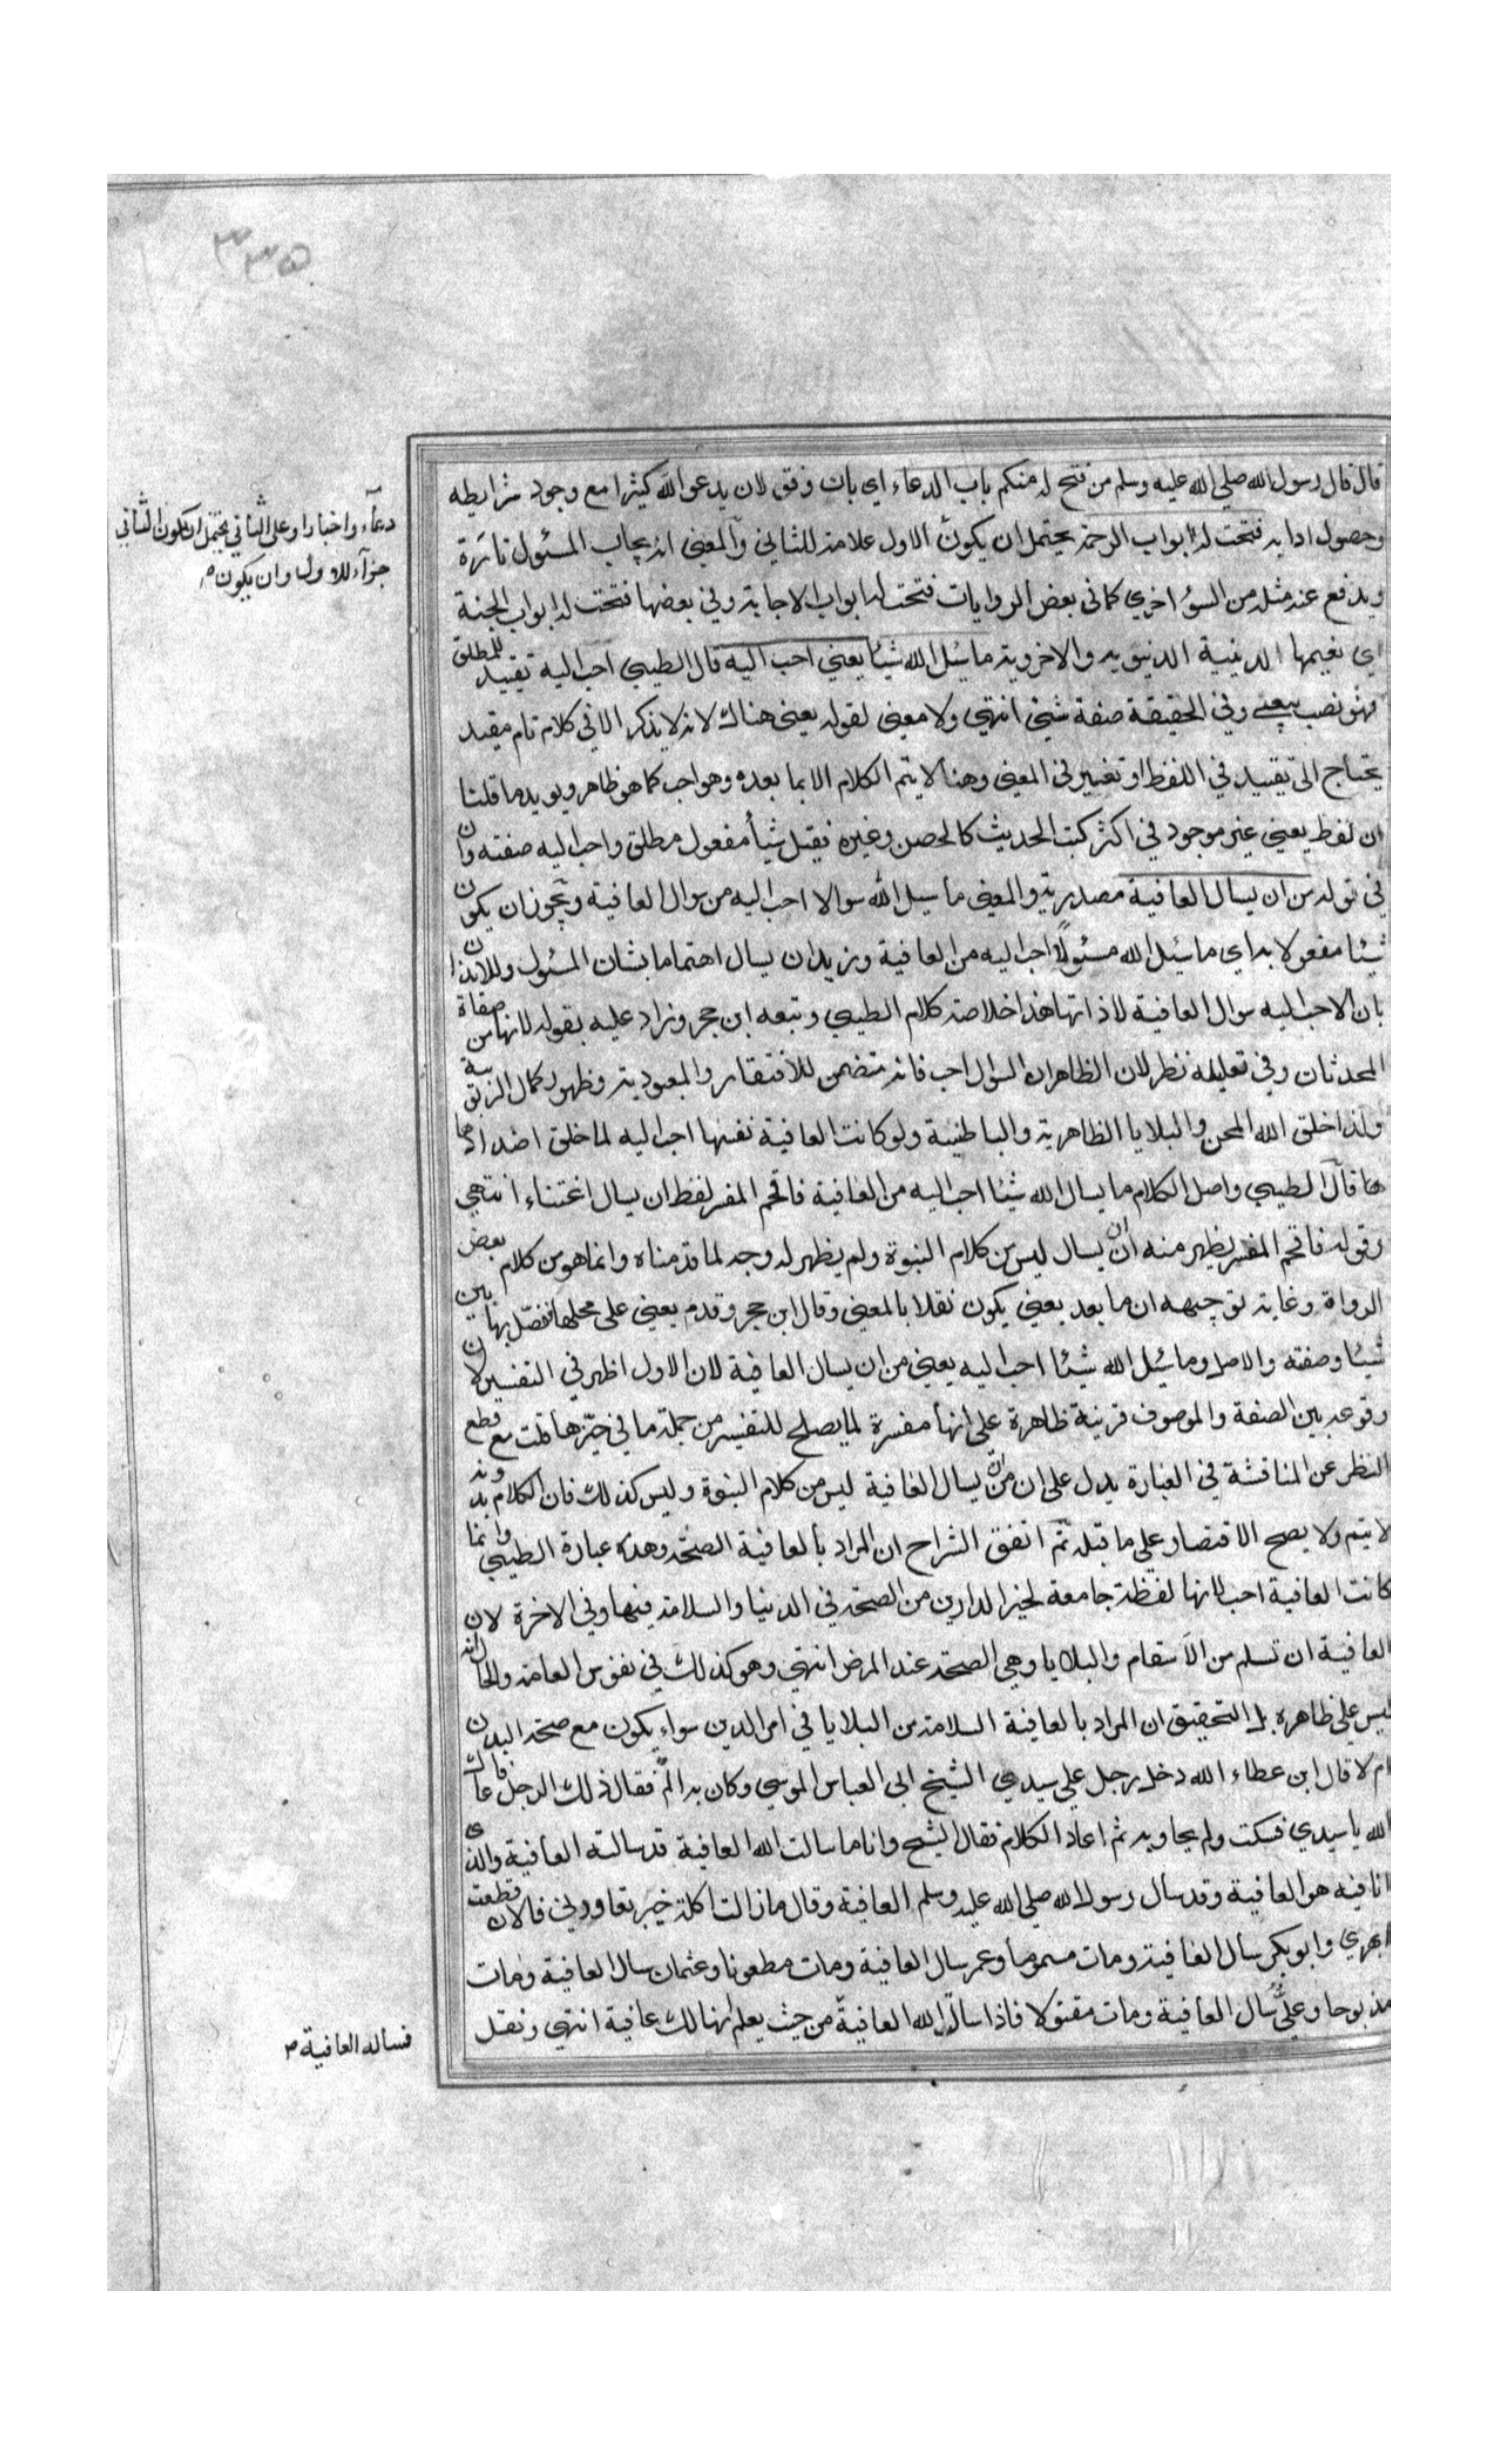 ٣٣٥
قال قال رسول الله صلي الله عليه وسلم من فتح له منكم باب الدعاء اي بان وفق لان يدعو الله كثيرا مع وجود شرايطه
وحصول ادابه فتحت له ابواب الرحمة يحتمل ان يكون الاول علامة للثاني والمعني انه يجاب المسئول تارة
ويدفع عنه مثله من السوء اخري كما في بعض الروايات فتحت له ابواب الاجابة وفي بعضها فتحت له ابواب الجنة
اي نعيمها الدينية الدنيوية والاخروية ما سئل الله شيئا يعني احب اليه قال الطيبي احب اليه تقييد للمطلق
فهو نصب بيعني وفي الحقيقة صفة شيئ انتهي ولا معني لقوله يعني هناك لانه لا يذكر الا في كلام تام مقيد
يحتاج الى تقييد في اللفظ او تغيير في المعني وهنا لا يتم الكلام الا بما بعده وهو احب كما هو ظاهر ويويده ما قلنا
ان لفظ يعني غير موجود في اكثر كتب الحديث كالحصن وغيره فقيل شيأ مفعول مطلق واحب اليه صفته وان
في قوله من ان يسال العافية مصدرية والمعني ما سيل الله سوالا احب اليه من سوال العافية ويجوز ان يكون
شيئا مفعولا به اي ما سئل الله مسئولا احب اليه من العافية وزيد ان يسال اهتماما بشان المسئول وللايذان
بان الاحب اليه سوال العافية لا ذاتها هذا خلاصة كلام الطيبي وتبعه ابن حجر وزاد عليه بقوله لانها من صفاة
المحدثات وفي تعليله نظر لان الظاهر ان السؤال احب فانه متضمن للافتقار والعبودية وظهور كمال الربوبية
ولذا خلق الله المحن والبلايا الظاهرية والباطنية ولو كانت العافية نفسها احب اليه لما خلق اضدادها
ها قال الطيبي واصل الكلام ما يسال الله شيئا احب اليه من العافية فاقحم المفسر لفظ ان يسال اعتناء انتهي
وقوله فاقحم المفسر يظهر منه ان ان يسال ليس من كلام النبوة ولم يظهر له وجه لما قدمناه وانما هو من كلام بعض
الرواة وغاية توجيهه ان ما بعد يعني يكون نقلا بالمعني وقال ابن حجر وقدم يعني على محلها ففصل بها بين
شيئا وصفته والاصل وما سئل الله شيئا احب اليه يعني من ان يسال العافية لان الاول اظهر في التفسير لان
وقوعه بين الصفة والموصوف قرينة ظاهرة على انها مفسرة لما يصلح للتفسير من جملة ما في حيزها قلت مع قطع
النظر عن المناقشة في العبارة يدل على ان من ان يسال العافية ليس من كلام النبوة وليس كذلك فان الكلام بدونه
لا يتم ولا يصح الاقتصار علي ما قبله ثم اتفق الشراح ان المراد بالعافية الصحة وهذه عبارة الطيبي وانما
كانت العافية احب لانها لفظة جامعة لخير الدارين من الصحة في الدنيا والسلامة فيها وفي الاخرة لان
العافية ان تسلم من الاسقام والبلايا وهي الصحة عند المرض انتهي وهو كذلك في نفوس العامة والحال انه
ليس علي ظاهره بل التحقيق ان المراد بالعافية السلامة من البلايا في امر الدين سواء يكون مع صحة البدن
ام لا قال ابن عطاء الله دخل رجل علي سيدي الشيخ ابي العباس المرسي وكان به الم فقال ذلك الرجل عافاك
الله يا سيدي فسكت ولم يجاوبه ثم اعاد الكلام فقال الشيخ وانا ما سالت الله العافية قد سالته العافية والذي
انا فيه هو العافية وقد سال رسول الله صلي الله عليه وسلم العافية وقال ما زالت اكلة خيبر تعاودني فالان قطعت
ابهري وابو بكر سأل العافية ومات مسموما وعمر سال العافية ومات مطعونا وعثمان سال العافية ومات
مذبوحا وعلي سال العافية ومات مقتولا فاذا سالت الله العافية من حيث يعلم انها لك عافية انتهي ونقل
دعآء واخبارا وعلى الثاني يحتمل ان يكون الثاني
جزآء للاول وان يكون
فساله العافية